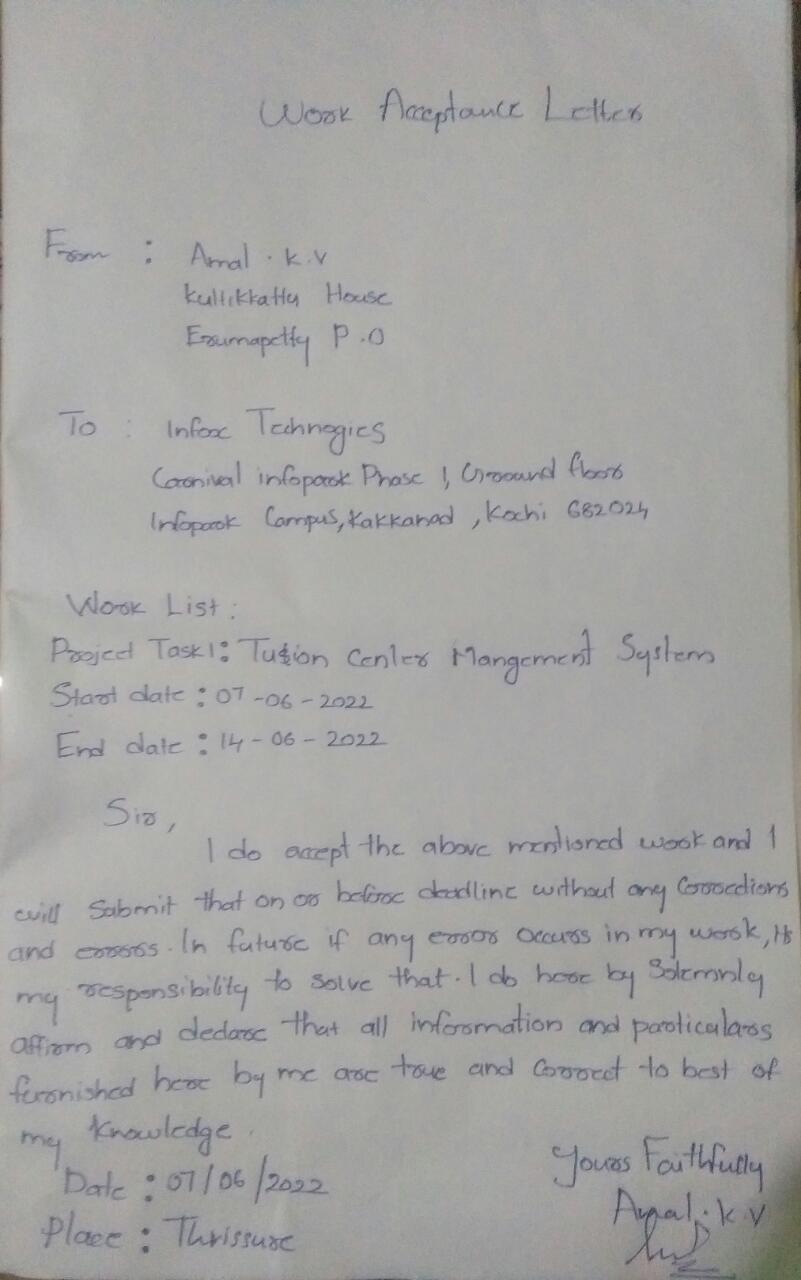 Work Acceptance Letter
From : Amal . K.V
Kullikkattu House
Erumapetty P.O
To : Infox Technogies
Carnival infopark Phase 1, Ground floor
Infopark Campus, Kakkanad , Kochi 682024
Work List :
Project Task1: Tution Center Mangement System
Start date : 07-06-2022
End date : 14-06-2022
Sir,
I do accept the above mentioned work and I
will Submit that on or before deadline without any Corrections
and errors. In future if any error occurs in my work, its
my responsibility to solve that. I do here by Solemnly
affirm and declare that all information and particulars
feronished here by me are true and Correct to best of
my Knowledge.
Date : 07/06/2022
Place : Thrissure
Yours Faithfully
Amal . K.V